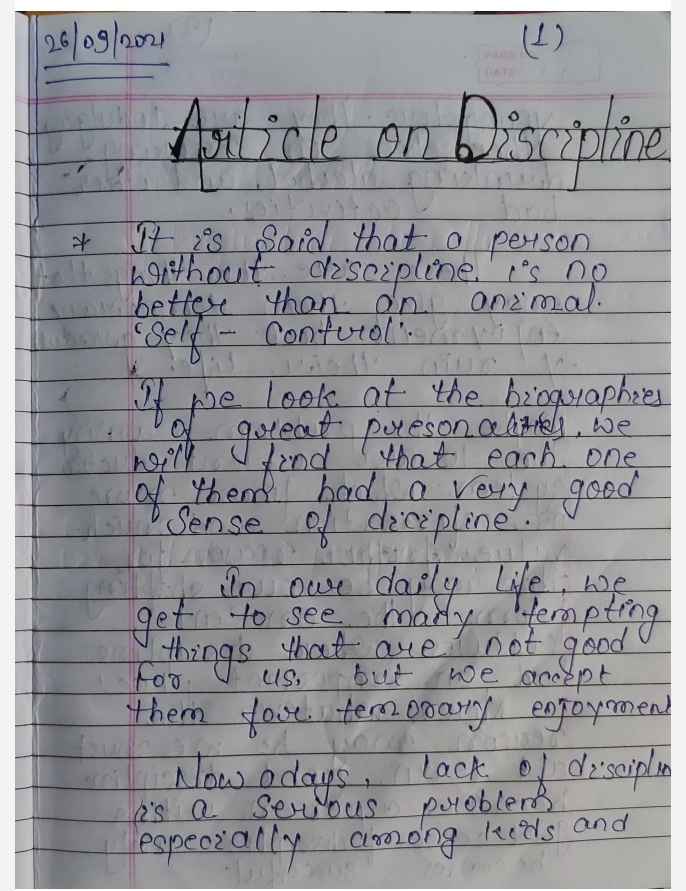 26/09/2021
(1)
PAGE:
DATE:
Article on Discipline
* It is Said that a person
without discipline. is no
better than an animal.
"Self - Control".
If we look at the biographies
of great presonalities, we
will find that each one
of them had a very good
Sense of dicipline.
In our daily life, we
get to see many tempting
things that are not good
for us, but we accept
them for temorary enjoyment
Now adays, lack of disciplin
is a serious problem
especially among kids and